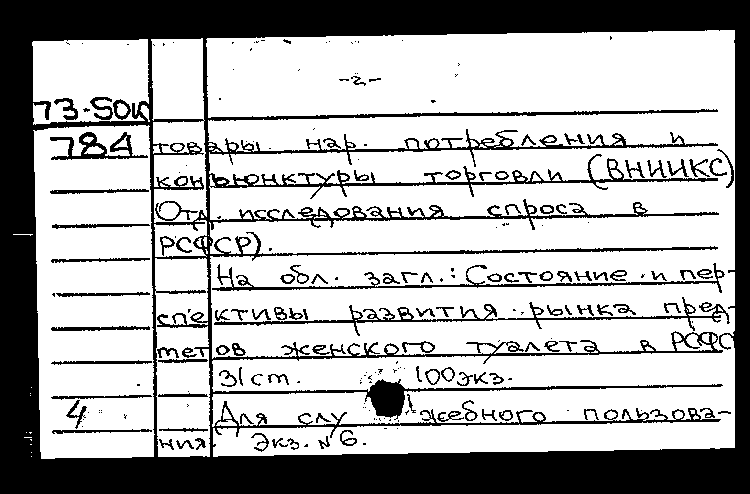 -2-
73-5ок
784 товары нар. потребления и
конъюнктуры торговли (ВНИИКС)
Отд. исследования спроса в
РСФСР).
На обл. загл.: Состояние и пер-
спективы развития рынка пред-
метов женского туалета в РСФС
31 ст. 100 экз.
4 Для служебного пользова-
ния. Экз. №6.